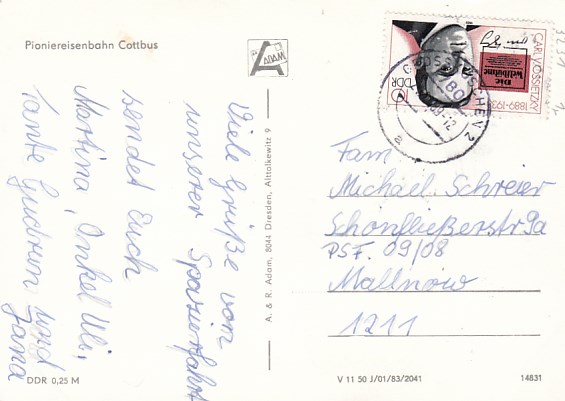 Pioniereisenbahn Cottbus
ADAM
Viele Grüße von
unserer Spazierfahrt
sendet Euch
Martina, Onkel Uli,
Tante Gudrun und
Jana
DDR 0,25 M
A. & R. Adam, 8044 Dresden, Alttolkewitz 9
CARL V. OSSIETZKY 1889-1938
Die Weltbühne
DDR
10
Fam.
Michael Schreier
Schönfließerstr. 9a
PSF. 09/08
Mallnow
1211
V 11 50 J/01/83/2041
14831